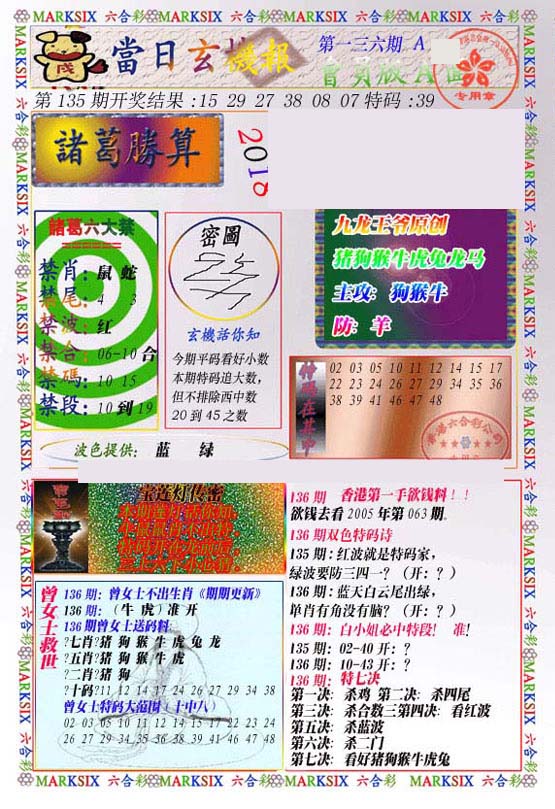 MARKSIX 六合彩 MARKSIX 六合彩 MARKSIX 六合彩 MARKSIX 六合彩 MARKSIX
當日玄機報
第一三六期 A
會員版A面
专用章
第135期开奖结果:15 29 27 38 08 07特码:39
諸葛勝算
2018
諸葛六大禁
禁肖:鼠 蛇
禁尾:4 3
禁波:红
禁合:06-10合
禁碼:10 15
禁段:10到19
密圖
玄機話你知
今期平码看好小数
本期特码追大数,
但不排除西中数
20到45之数
九龙王爷原创
猪狗猴牛虎兔龙马
主攻:狗猴牛
防:羊
特码在其中
02 03 05 10 11 12 14 15 17
22 23 24 26 27 29 34 35 36
38 39 41 46 47 48
波色提供: 蓝 绿
宝莲灯传密
136期 香港第一手欲钱料!!
欲钱去看2005年第063期.
136期双色特码诗
135期:红波就是特码家,
绿波要防三四一?(开:?)
136期:蓝天白云尾出绿,
单肖有角没有脑?(开:?)
136期:白小姐必中特段! 准!
135期:02-40开:?
136期:10-43开:?
136期:特七决
第一决:杀鸡 第二决:杀四尾
第三决:杀合数三第四决:看红波
第五决:杀蓝波
第六决:杀二门
第七决:看好猪狗猴牛虎兔
曾女士救世
136期:曾女士不出生肖《期期更新》
136期:(牛虎)准开
136期曾女士送码料:
?七肖?猪狗猴牛虎兔龙
?五肖?猪狗猴牛虎
?二肖?猪狗
?十码?11 12 14 17 24 26 27 29 34 38
曾女士特码大范围(十中八)
02 03 05 10 11 12 14 15 17 22 23 24
26 27 29 34 35 36 38 39 41 46 47 48
MARKSIX 六合彩 MARKSIX 六合彩 MARKSIX 六合彩 MARKSIX 六合彩 MARKSIX